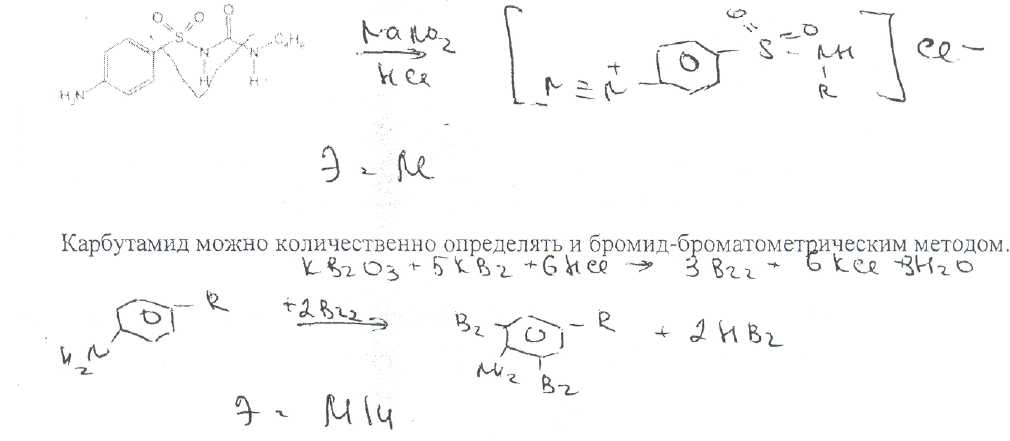 O O O
S N N C₄H₉
H H
H₂N
NaNO₂
HCl
[ N ≡ N⁺ O O S NH R ] Cl⁻
Э = M
Карбутамид можно количественно определять и бромид-броматометрическим методом.
KBrO₃ + 5KBr + 6HCl → 3Br₂ + 6KCl 3H₂O
H₂N R +2Br₂ → Br R NH₂ Br + 2HBr
Э = M/4